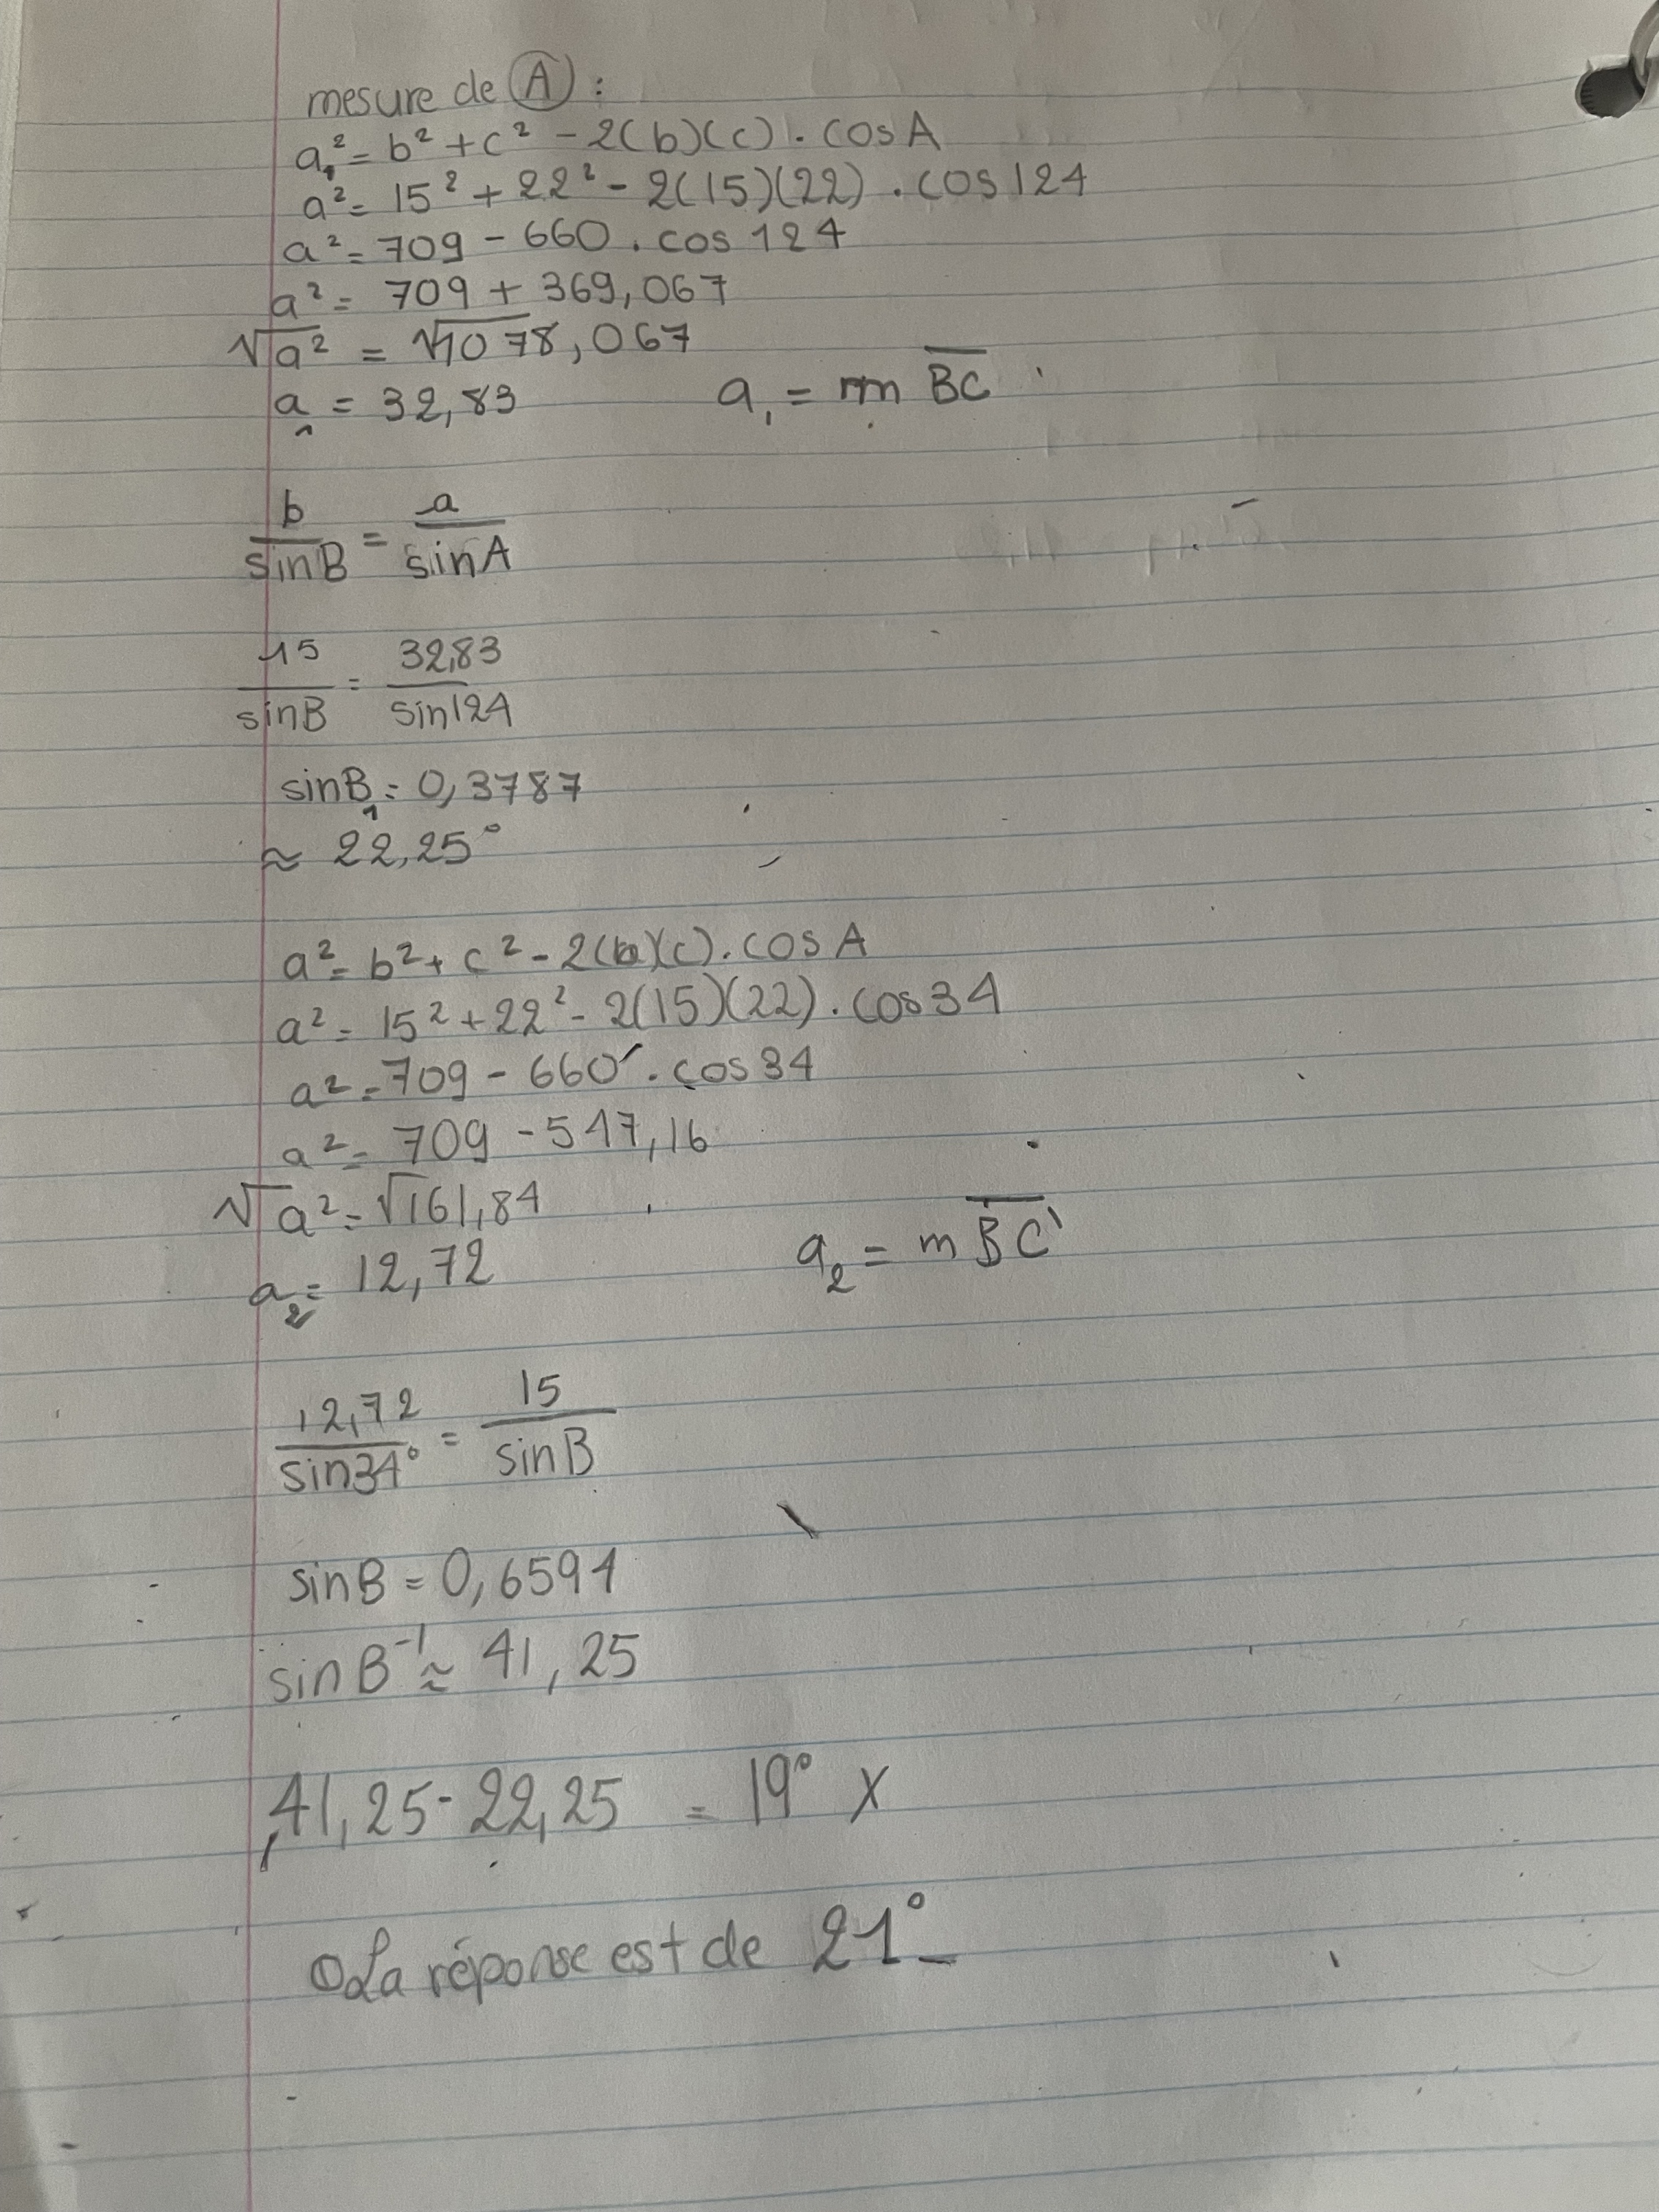 mesure de A :
a₁² = b² + c² - 2(b)(c) . cos A
a² = 15² + 22² - 2(15)(22) . cos 124
a² = 709 - 660 . cos 124
a² = 709 + 369,067
√a² = √1078,067
a₁ = 32,83 a₁ = m BC
b/sinB = a/sinA
15/sinB = 32,83/sin124
sinB₁ = 0,3787
≈ 22,25°
a² = b² + c² - 2(b)(c) . cos A
a² = 15² + 22² - 2(15)(22) . cos 34
a² = 709 - 660 . cos 34
a² = 709 - 547,16
√a² = √161,84
a₂ = 12,72 a₂ = m BC'
12,72/sin34° = 15/sinB
sinB = 0,6594
sinB⁻¹ ≈ 41,25
41,25 - 22,25 = 19° X
La réponse est de 21°